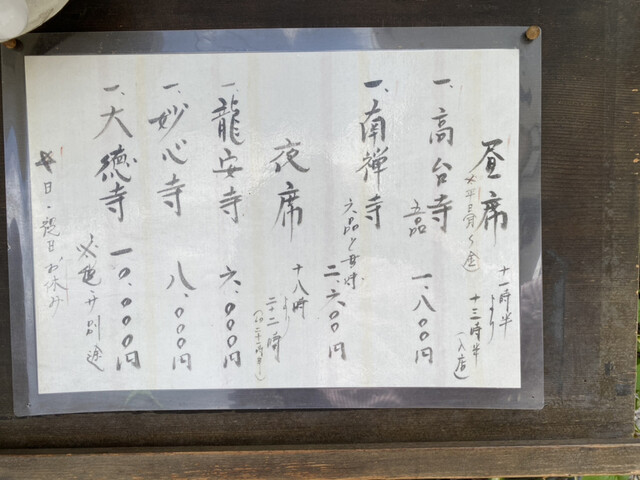 昼席
十一時半
より
十三時半
入店
一、高台寺
五品
一、八〇〇円
一、南禅寺
六品と甘味
二、六〇〇円
夜席
十八時
より
二十二時
一、龍安寺
六、〇〇〇円
一、妙心寺
八、〇〇〇円
一、大徳寺
一〇、〇〇〇円
別途
日・祝日お休み